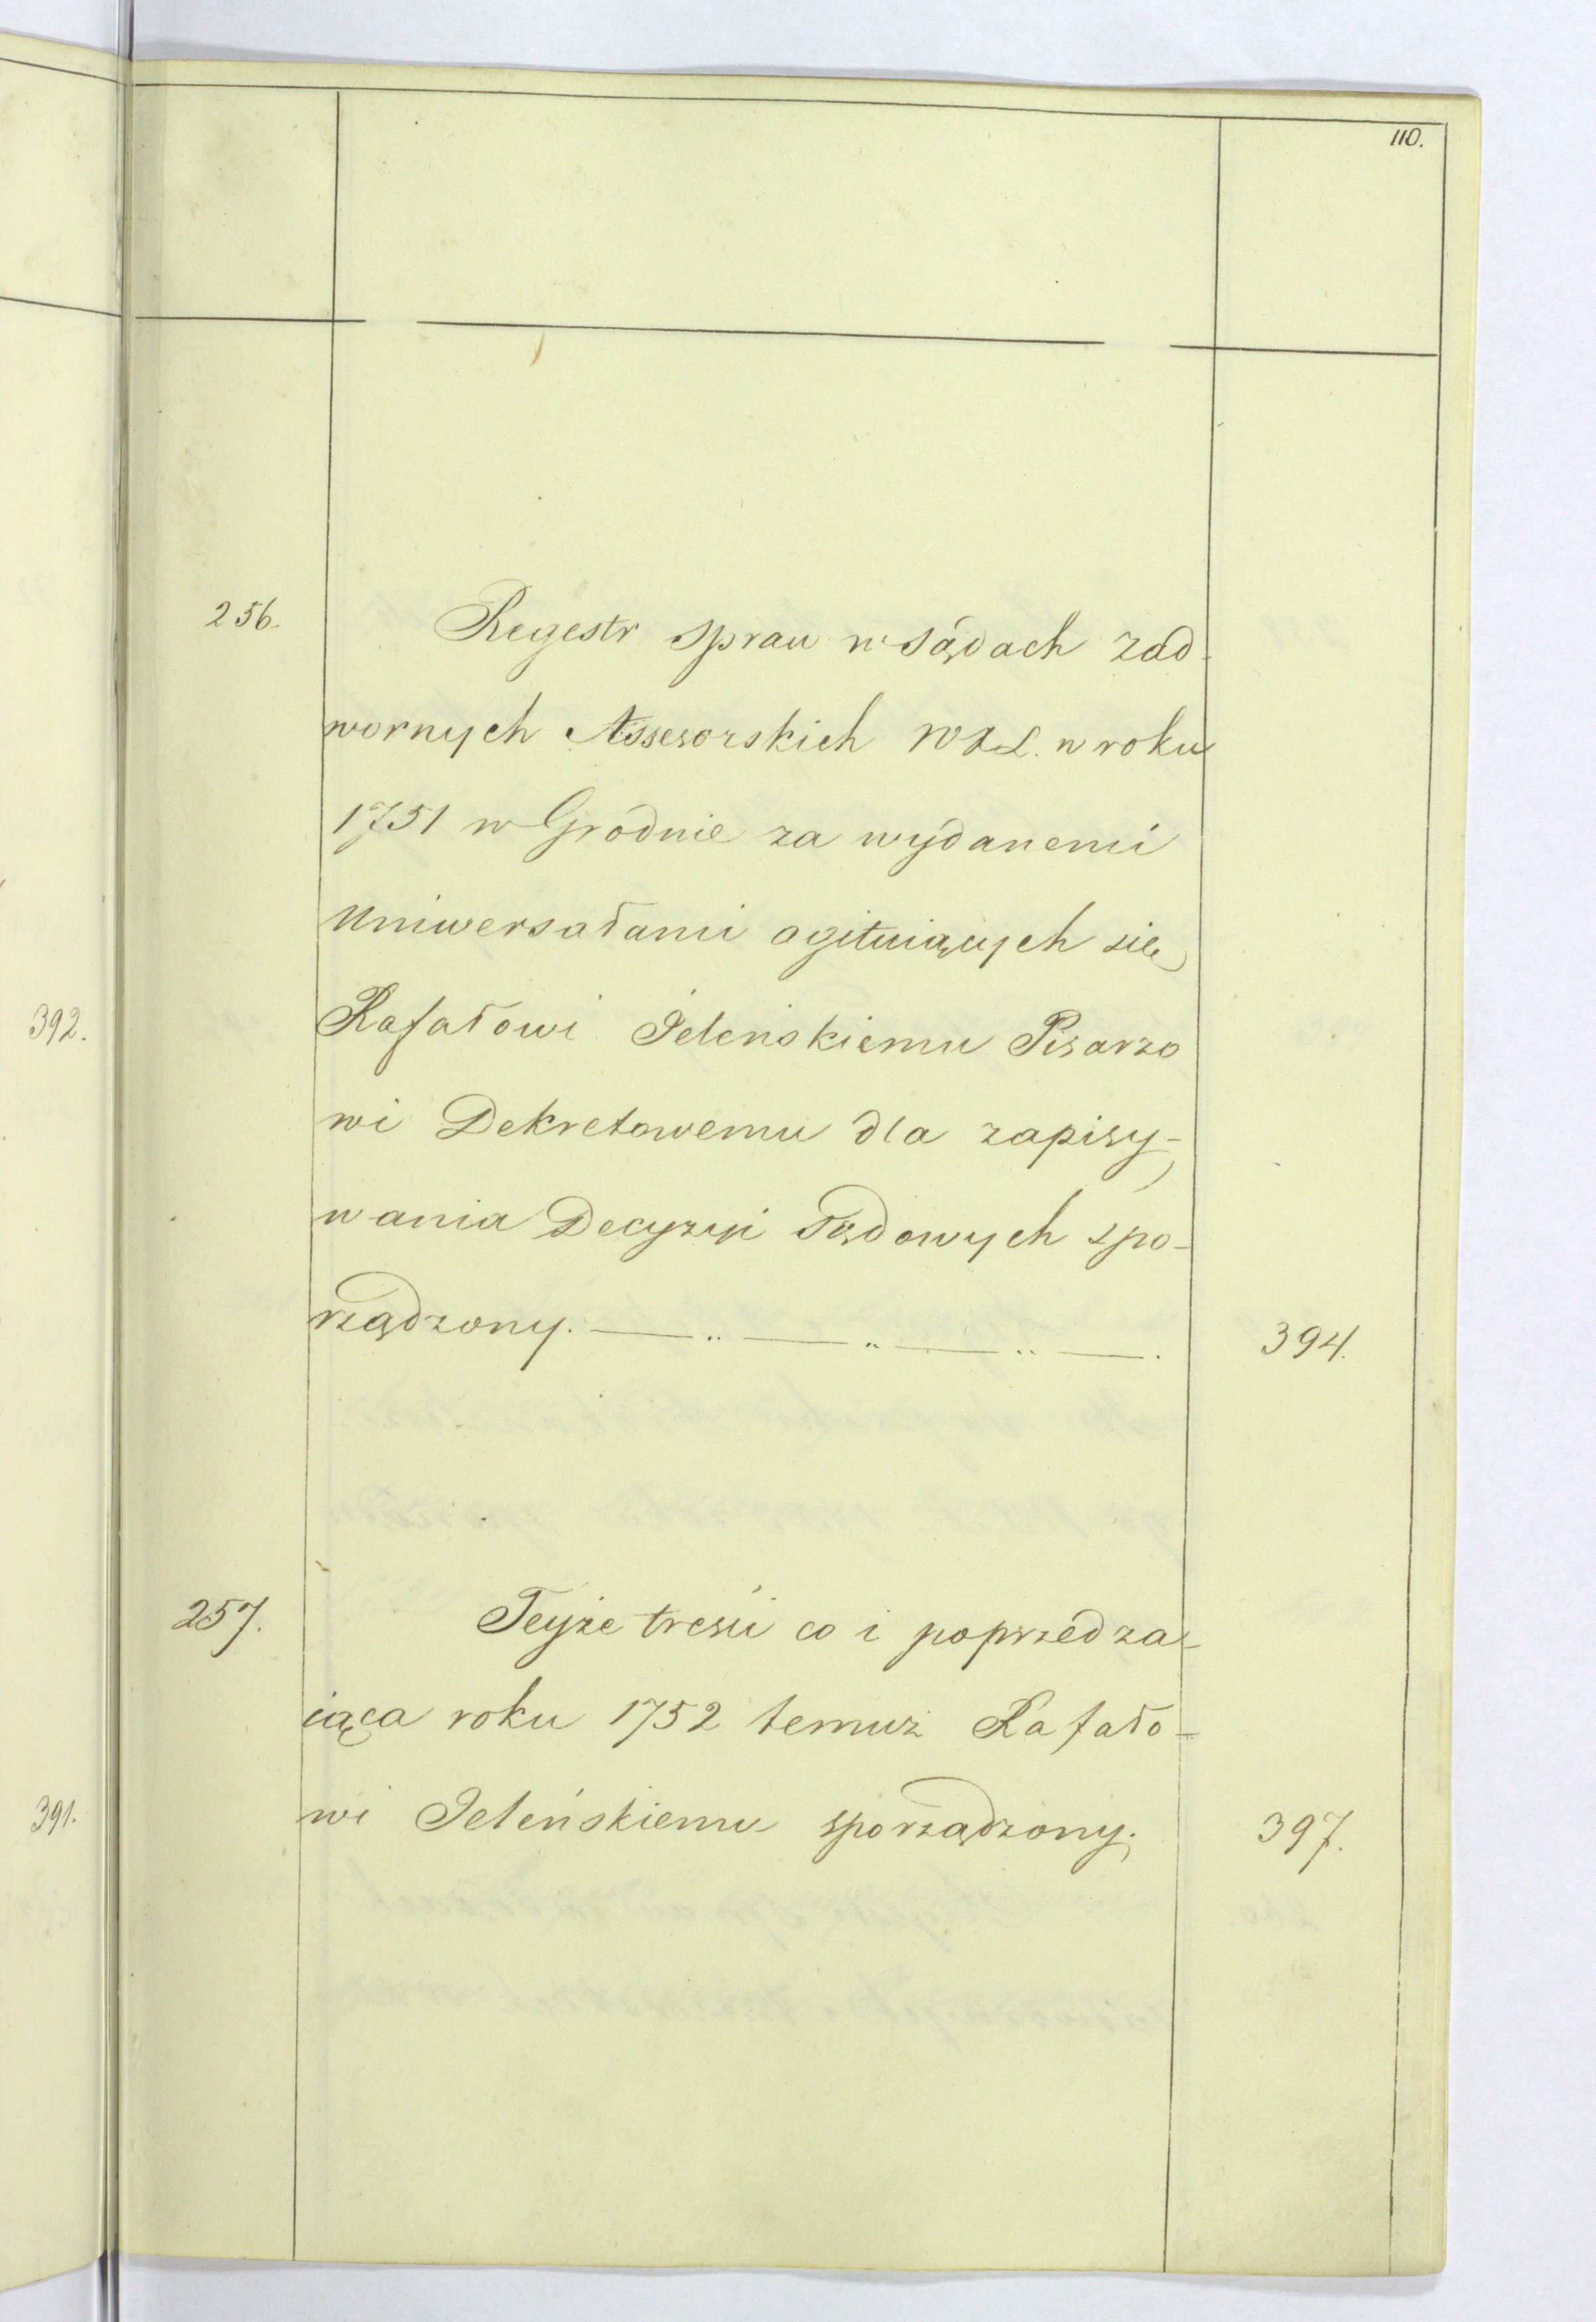 110.
256.
Regestr spraw w sądach zad-
wornych Assesorskich WXL. w roku
1751 w Grodnie za wydanemi
Uniwersałami agituiących się
Rafałowi Jeleńskiemu Pisarzo
wi Dekretowemu dla zapisy-
wania Decyzyi Sądowych spo-
rządzony.
394.
257.
Teyże treści co i poprzedza-
iąca roku 1752 temuż Rafało-
wi Jeleńskiemu sporządzony.
397.
392.
391.